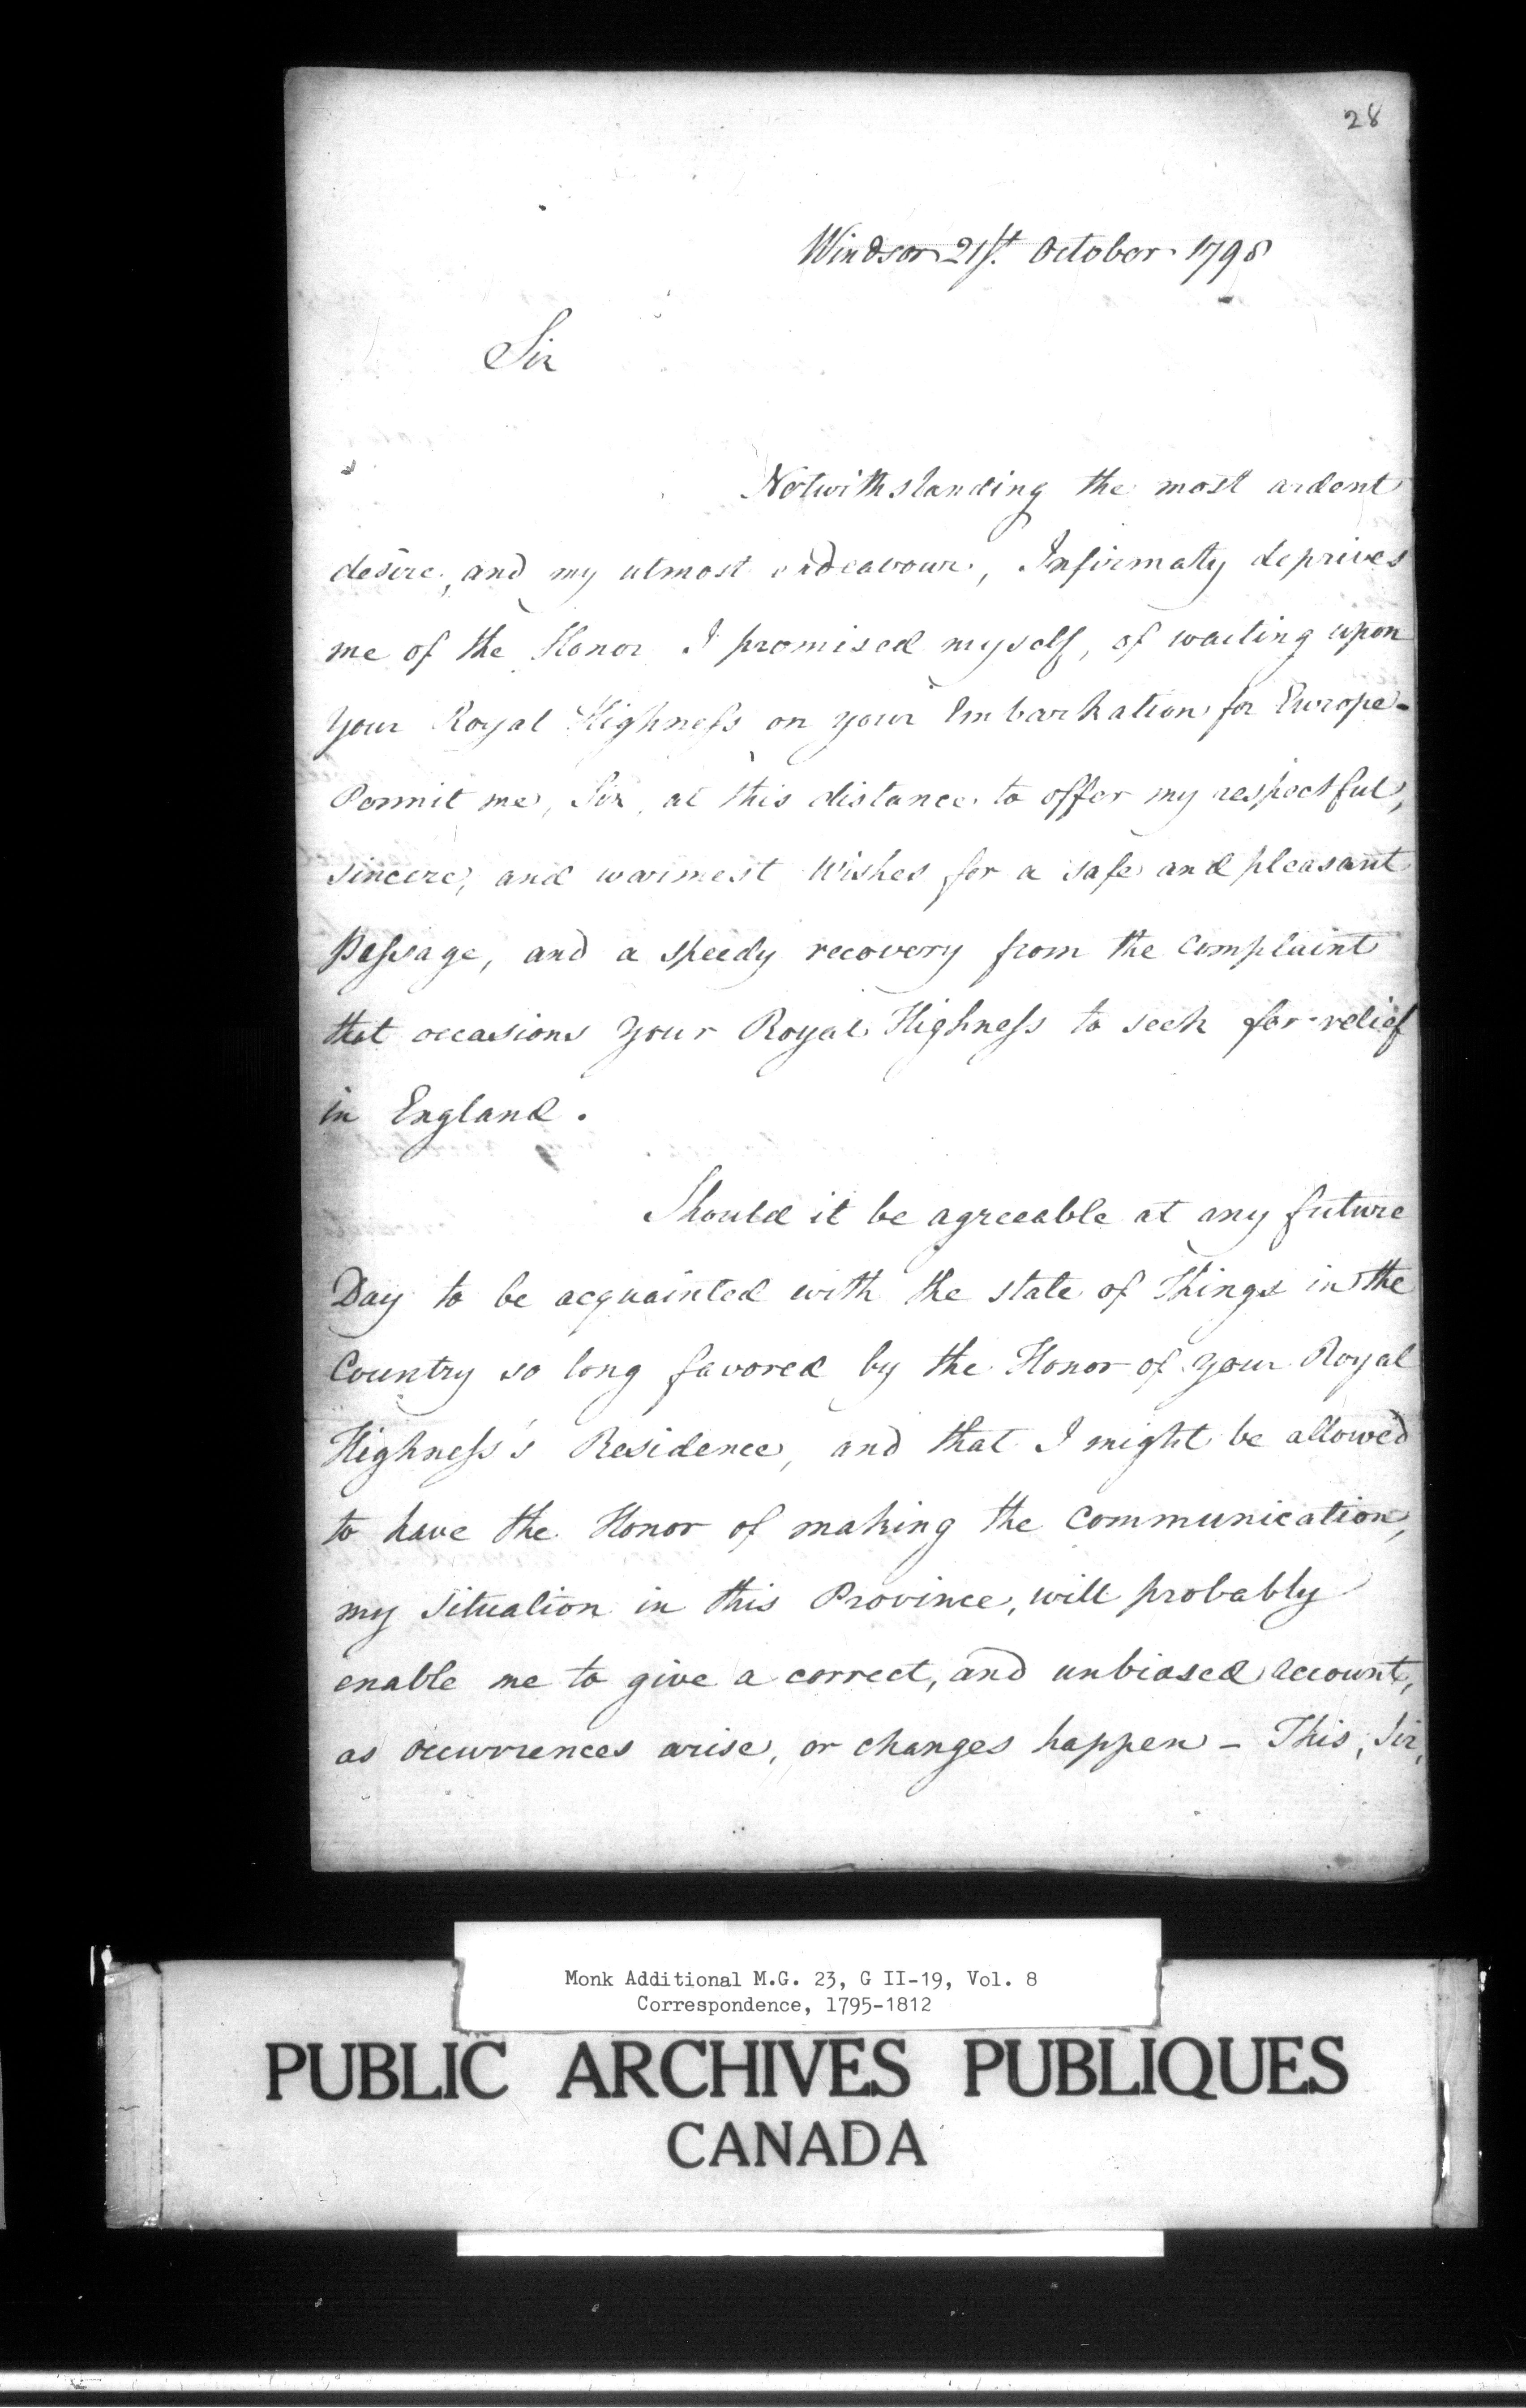 28
Windsor 21st October 1798
Sir
Notwithstanding the most ardent
desire, and my utmost endeavour, Infirmaty deprives
me of the Honor I promised myself, of waiting upon
Your Royal Highness on your Embarkation for Europe-
Permit me, Sir, at this distance to offer my respectful,
sincere, and warmest Wishes for a safe and pleasant
Passage, and a speedy recovery from the Complaint
that occasions Your Royal Highness to seek for relief
in England.
Should it be agreeable at any future
Day to be acquainted with the state of Things in the
Country so long favored by the Honor of Your Royal
Highness's Residence, and that I might be allowed
to have the Honor of making the Communication,
my situation in this Province, will probably
enable me to give a correct, and unbiased account,
as occurrences arise, or changes happen - This, Sir,
Monk Additional M.G. 23, G II-19, Vol. 8
Correspondence, 1795-1812
PUBLIC ARCHIVES PUBLIQUES
CANADA